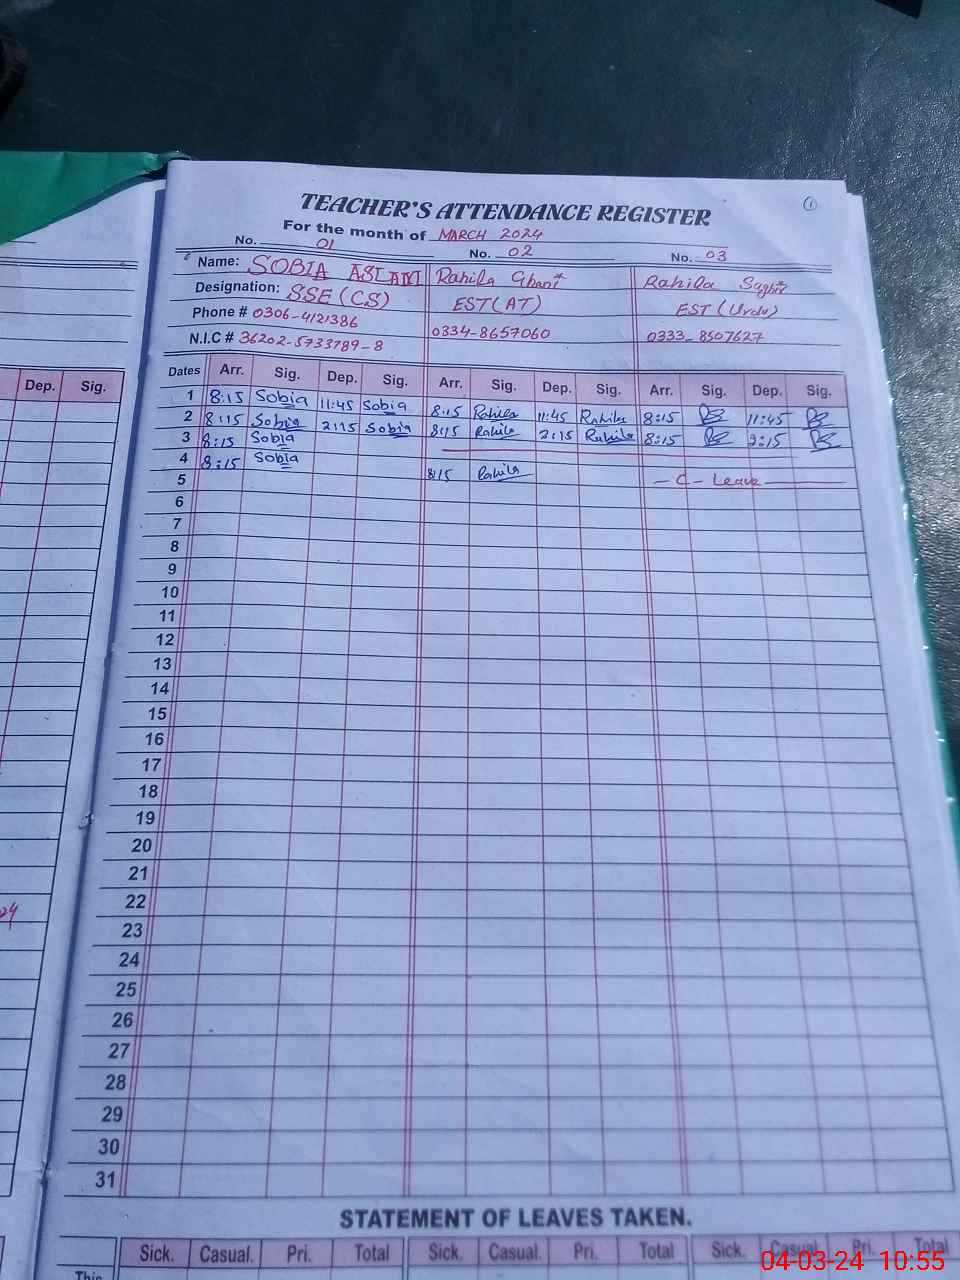 TEACHER'S ATTENDANCE REGISTER
1
For the month of MARCH 2024
No. 01 No. 02 No. 03
Name: SOBIA ASLAM Rahila Ghani Rahila Saghir
Designation: SSE (CS) EST (AT) EST (Urdu)
Phone # 0306-4121386 0334-8657060 0333-8507627
N.I.C # 36202-5733789-8
Dates Arr. Sig. Dep. Sig. Arr. Sig. Dep. Sig. Arr. Sig. Dep. Sig.
Dep. Sig.
1 8:15 Sobia 11:45 Sobia 8:15 Rahila 11:45 Rahila 8:15 11:45
2 8:15 Sobia 2:15 Sobia 8:15 Rahila 2:15 Rahila 8:15 2:15
3 8:15 Sobia
4 8:15 Sobia 8:15 Rahila - C - Leave
5
6
7
8
9
10
11
12
13
14
15
16
17
18
19
20
21
22
23
24
25
26
27
28
29
30
31
STATEMENT OF LEAVES TAKEN.
Sick. Casual. Pri. Total Sick. Casual. Pri. Total Sick. Casual. Pri. Total
This
04-03-24 10:55